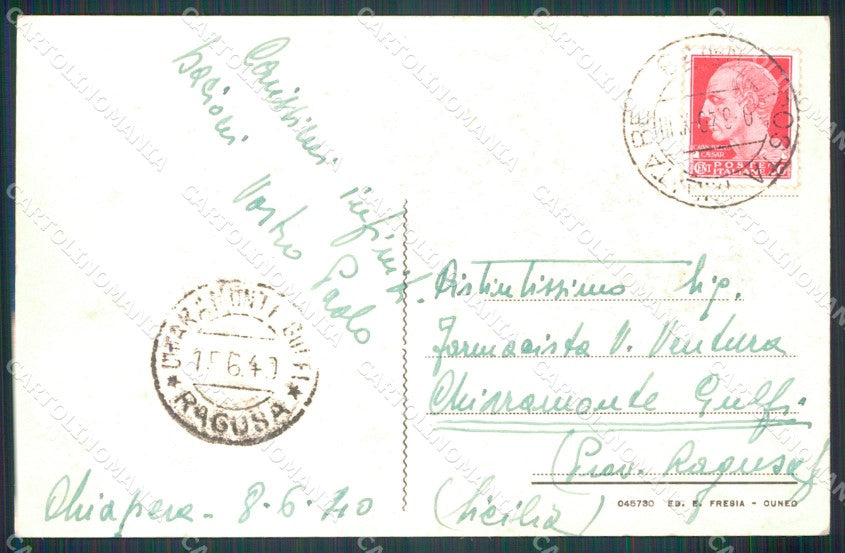 Carissimi infiniti
bacioni Vostro Paolo
CHIARAMONTE GULFI
15.6.40
★ RAGUSA ★
Chiapera - 8-6-40
CAESAR
CENT POSTE
ITALIANE
Distintissimo Sig.
Farmacista V. Ventura
Chiaramonte Gulfi
(Prov. Ragusa)
(Sicilia)
045730 ED. E. FRESIA - CUNEO
CARTOLINOMANIA